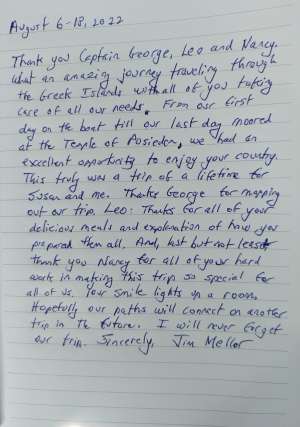 August 6-18, 2022
Thank you Captain George, Leo and Nancy.
What an amazing journey traveling through
the Greek Islands with all of you taking
care of all our needs. From our first
day on the boat till our last day moored
at the Temple of Posieden, we had an
excellent opportunity to enjoy your country.
This truly was a trip of a lifetime for
Susan and me. Thanks George for mapping
out our trip. Leo: Thanks for all of your
delicious meals and explanation of how you
prepared them all. And, last but not least
thank you Nancy for all of your hard
work in making this trip so special for
all of us. Your smile lights up a room.
Hopefully our paths will connect on another
trip in the future. I will never forget
our trip. Sincerely, Jim Mellor